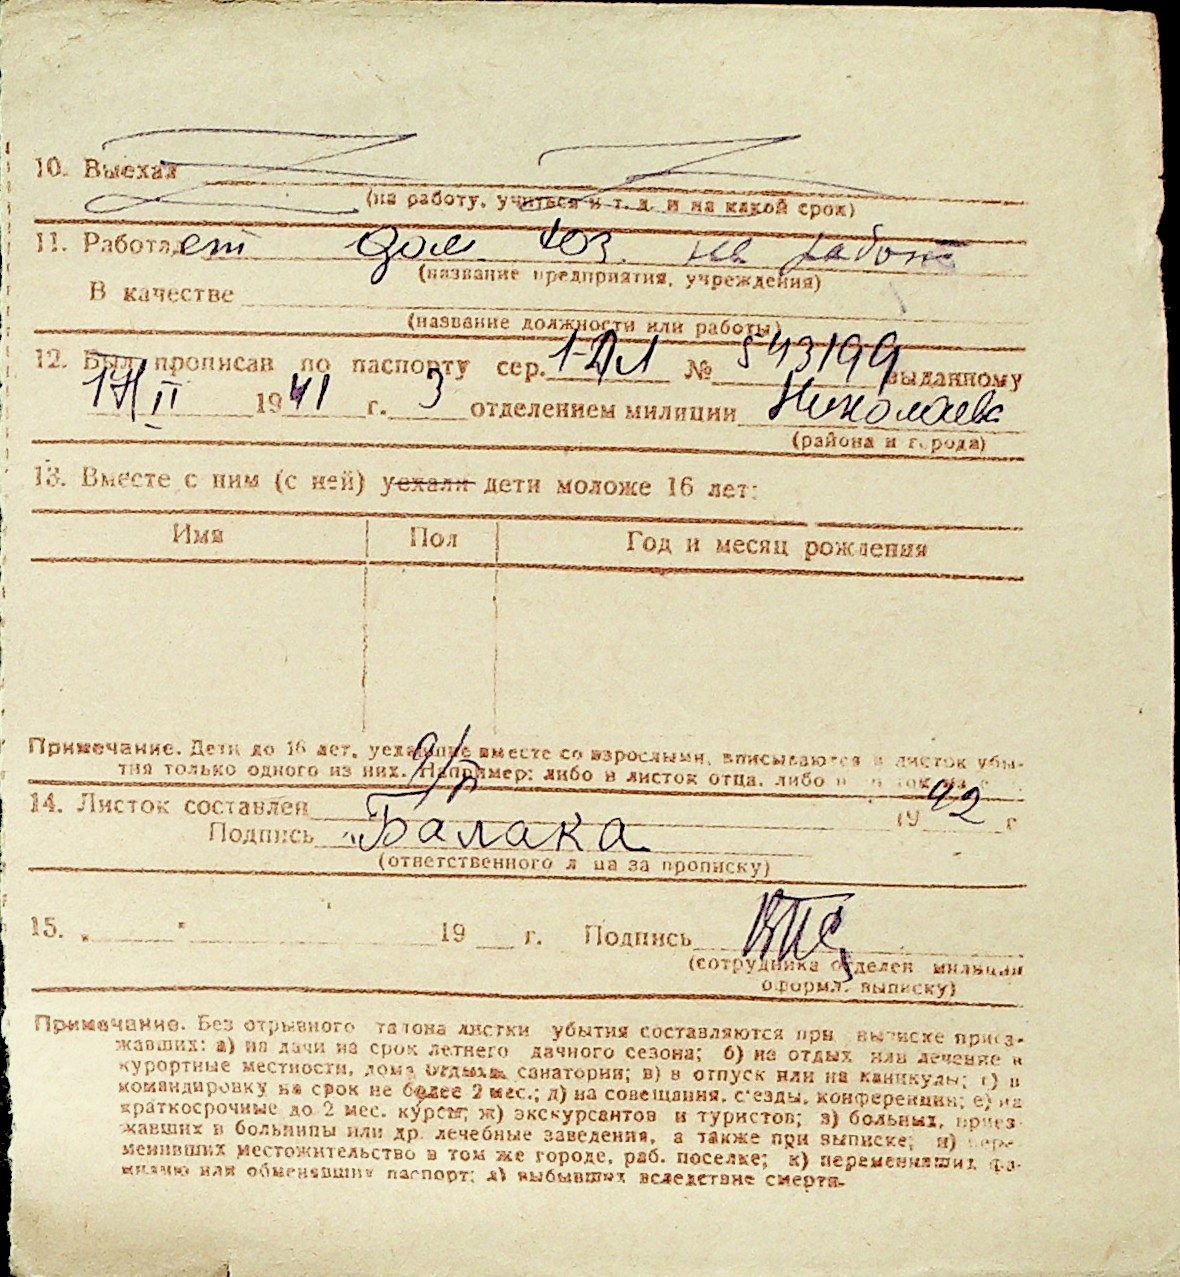 10. Выехал
(на работу, учиться и т. д. и на какой срок)
11. Работает дом. хоз. на работ
(название предприятия, учреждения)
В качестве
(название должности или работы)
12. Был прописан по паспорту сер. 1-ДЛ № 543199 выданному
17/II 1941 г. 3 отделением милиции Николаев
(района и города)
13. Вместе с ним (с ней) уехали дети моложе 16 лет:
Имя Пол Год и месяц рождения
Примечание. Дети до 16 лет, уехавшие вместе со взрослыми, вписываются в листок убы-
тия только одного из них. Например: либо в листок отца, либо
14. Листок составлен 1942 г
Подпись „Балака
(ответственного лица за прописку)
15. „ " 19 г. Подпись
(сотрудника отделен милиции
оформл. выписку)
Примечание. Без отрывного талона листки убытия составляются при выписке приез-
жавших: а) на дачи на срок летнего дачного сезона; б) на отдых или лечение в
курортные местности, дома отдыха, санатории; в) в отпуск или на каникулы; г) в
командировку на срок не более 2 мес.; д) на совещания, съезды, конференции; е) на
краткосрочные до 2 мес. курсы; ж) экскурсантов и туристов; з) больных, приез-
жавших в больницы или др. лечебные заведения, а также при выписке; и) пере-
менивших местожительство в том же городе, раб. поселке; к) переменивших фа-
милию или обменявших паспорт; л) выбывших вследствие смерти.